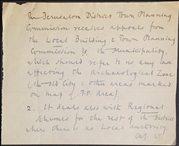 The Jerusalem District Town Planning
Commission receives appeals from
the Local Building & Town Planning
Commission of the Municipality,
which should refer to me any case
affecting the Archaeological Zone
the Old City & other areas marked
on map of T.P. Area
2. It deals also with Regional
Schemes for the rest of the District
where there is no Local authority